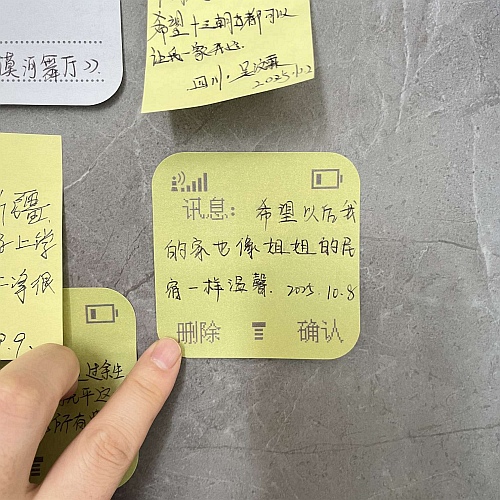 漠河舞厅》
希望十三朝古都可以
让我一家开心
四川·吴
2025.10.2
新疆
上学
很
9.9.
讯息: 希望以后我
的家也像姐姐的民
宿一样温馨. 2025.10.8
删除 确认
过余生
平这
所有